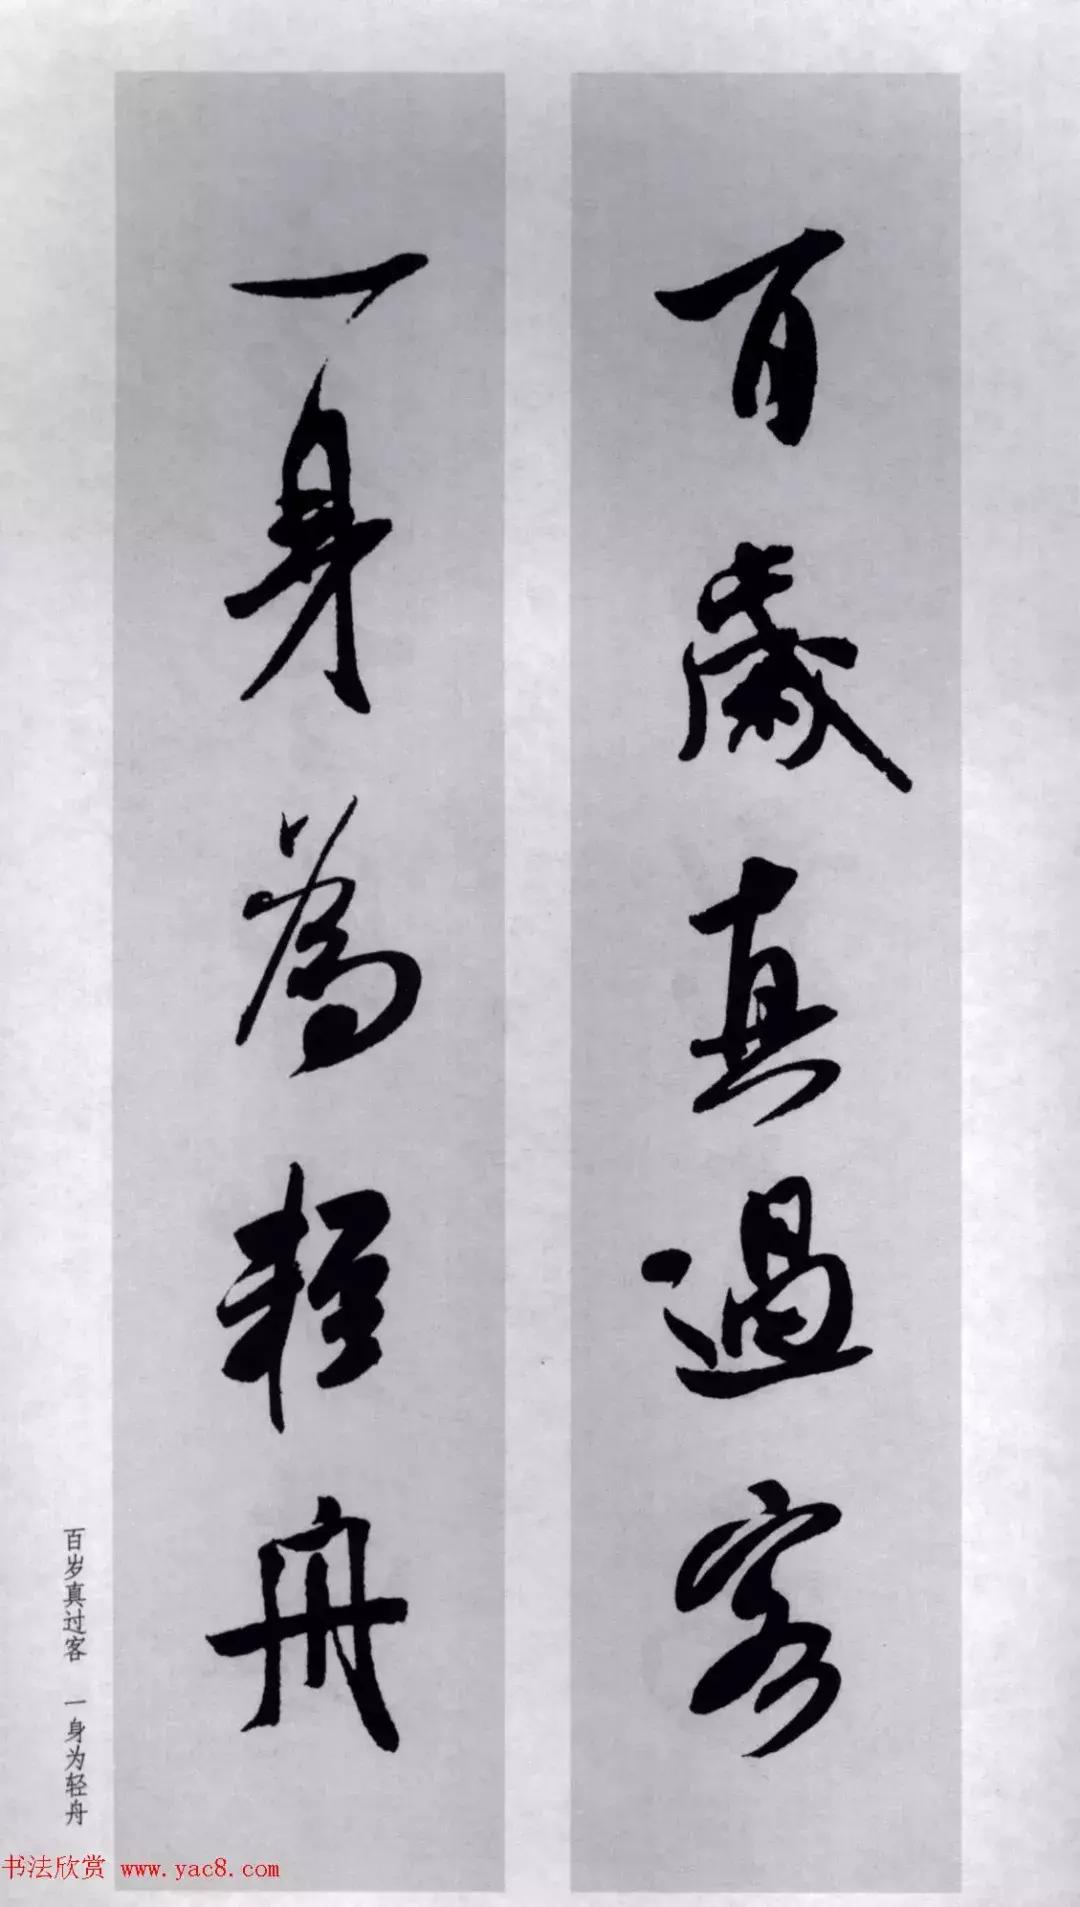 百歲真過客
一身為輕舟
百岁真过客 一身为轻舟
书法欣赏 www.yac8.com